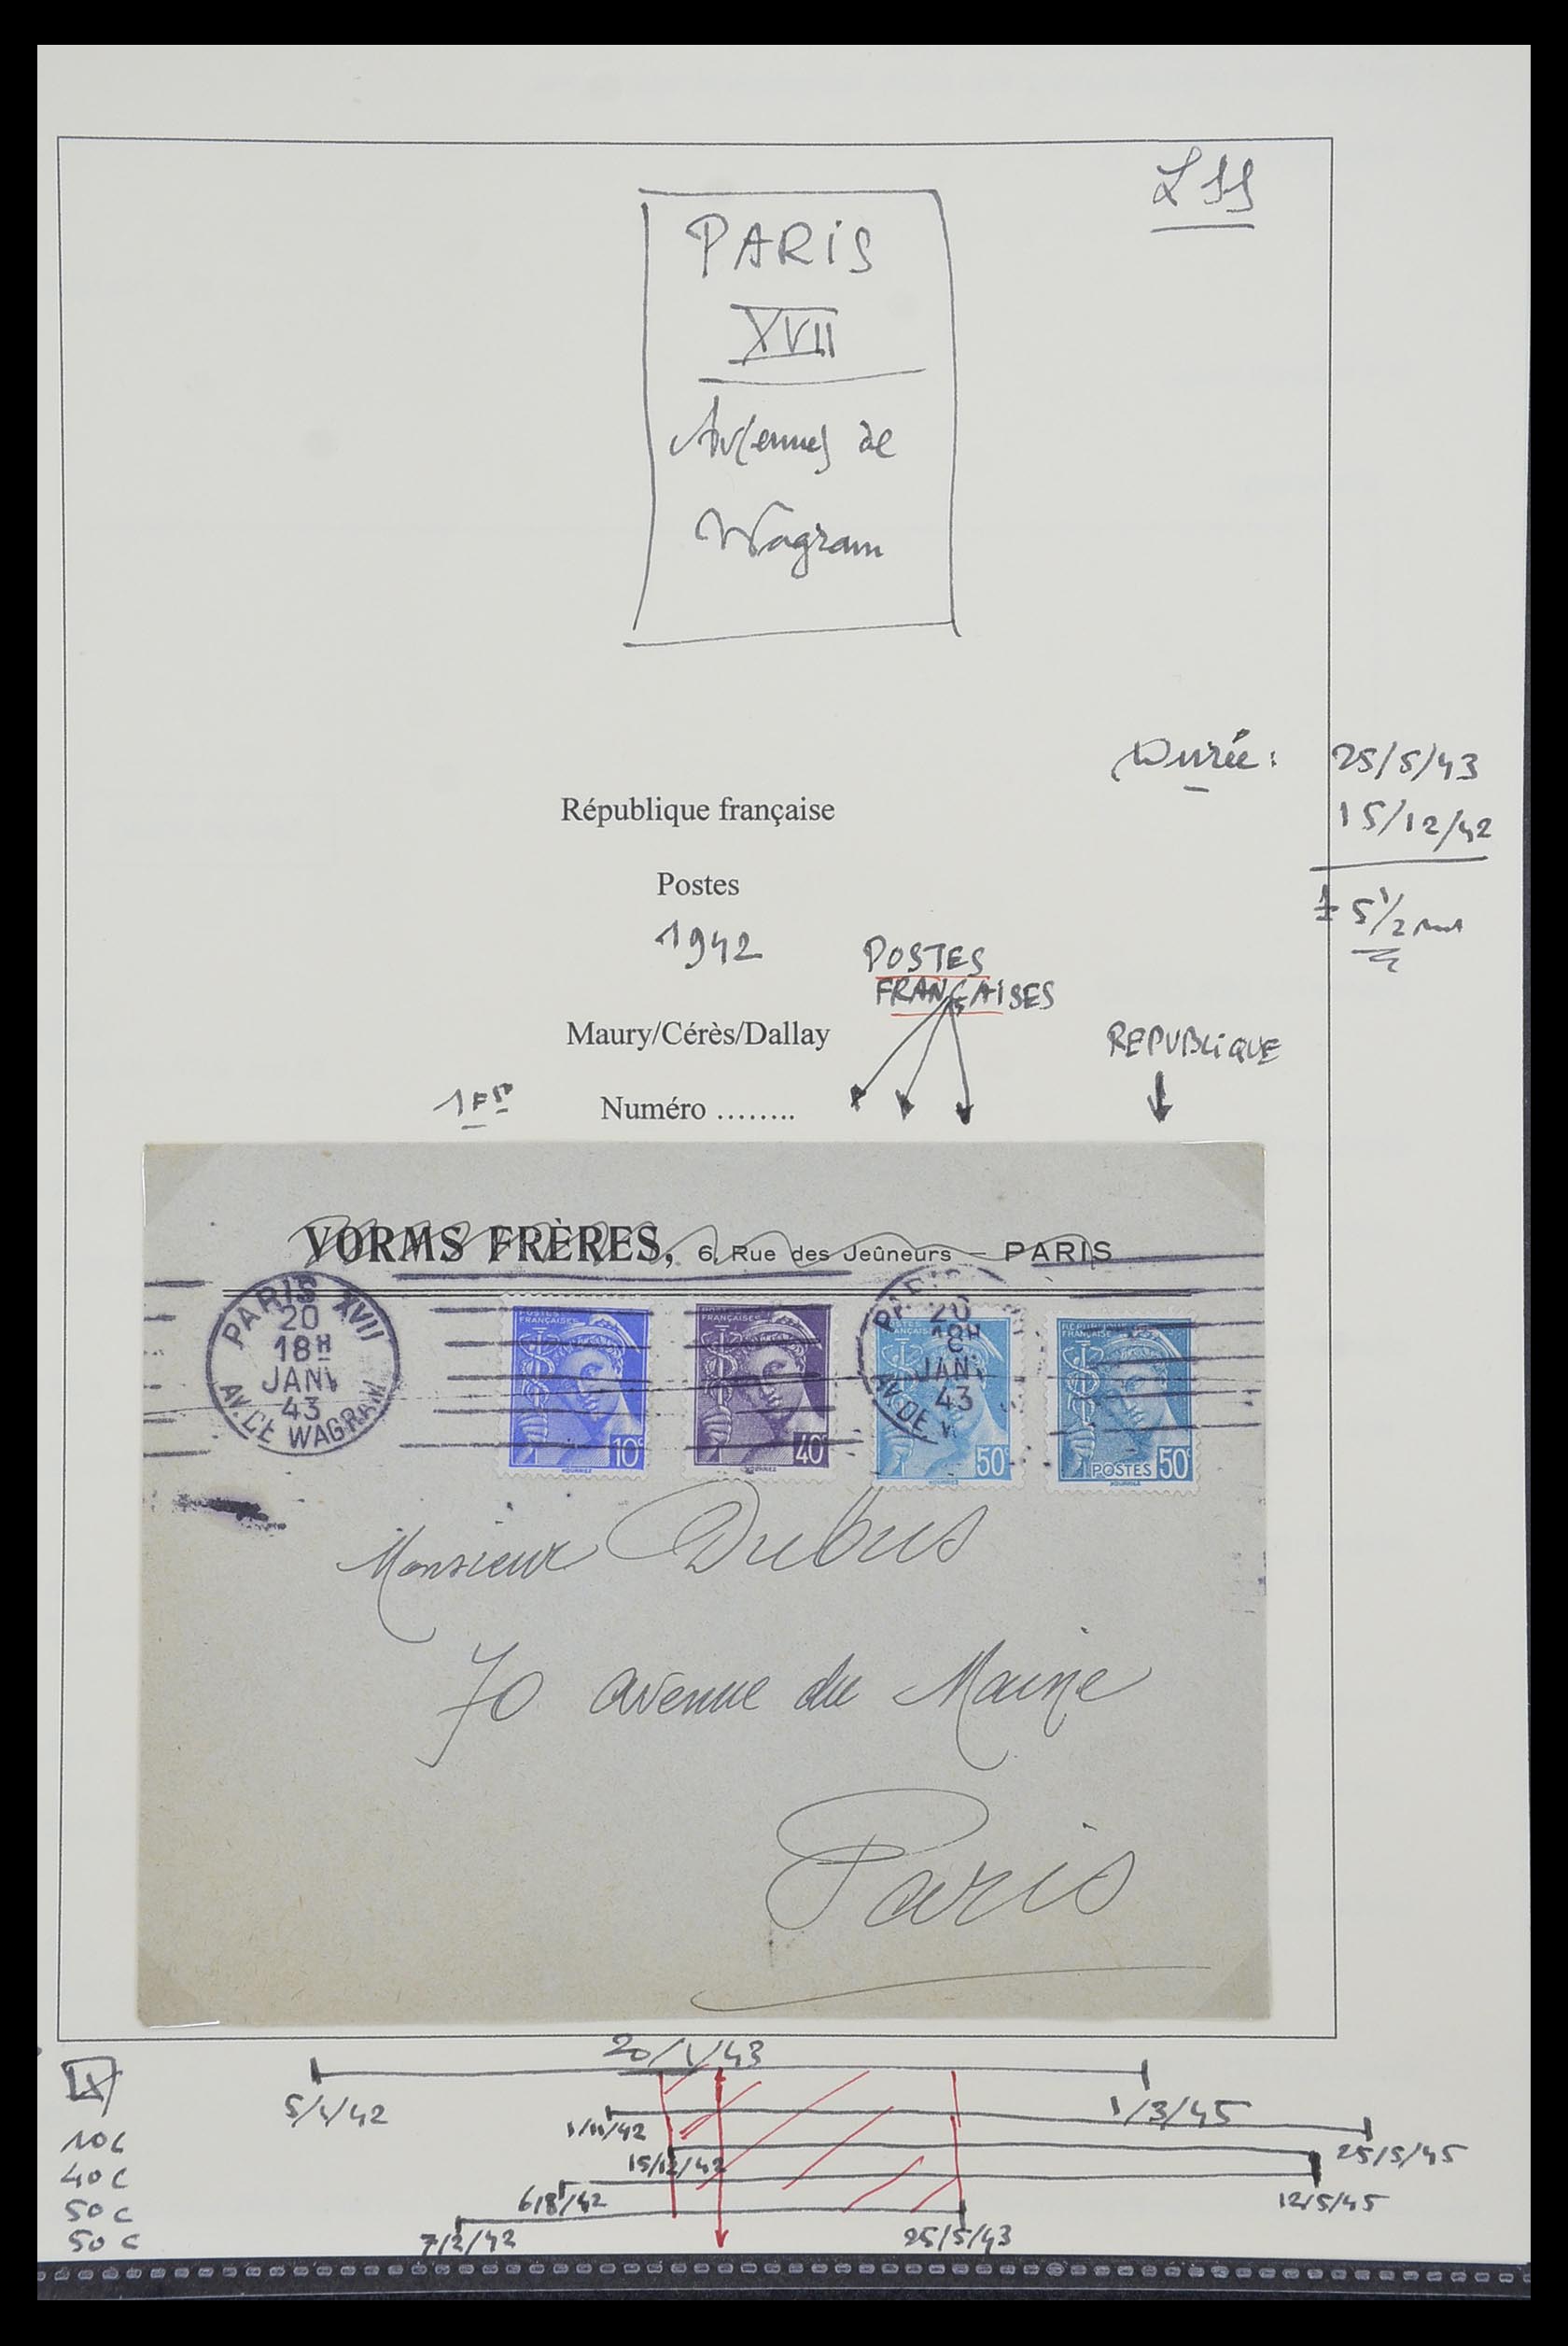 LSS
PARIS
XVII
Av(enue) de
Wagram
Durée : 25/5/43
15/12/42
± 5 1/2
République française
Postes
1942
POSTES
FRANÇAISES
Maury/Cérès/Dallay
REPUBLIQUE
1F50
Numéro ……..
VORMS FRÈRES, 6, Rue des Jeûneurs — PARIS
PARIS XVII
20
18H
JANV
43
AV. DE WAGRAM
POSTES
FRANÇAISES
10c
FRANÇAISES
40c
50c
RÉPUBLIQUE
FRANÇAISE
POSTES 50c
20
18H
JANV
43
AV. DE W
Monsieur Dubus
70 avenue du Maine
Paris
20/1/43
5/1/42
1/3/45
10c
1/11/42
25/5/45
40c
15/12/42
50c
6/8/42
12/5/45
50c
7/2/42
25/5/43